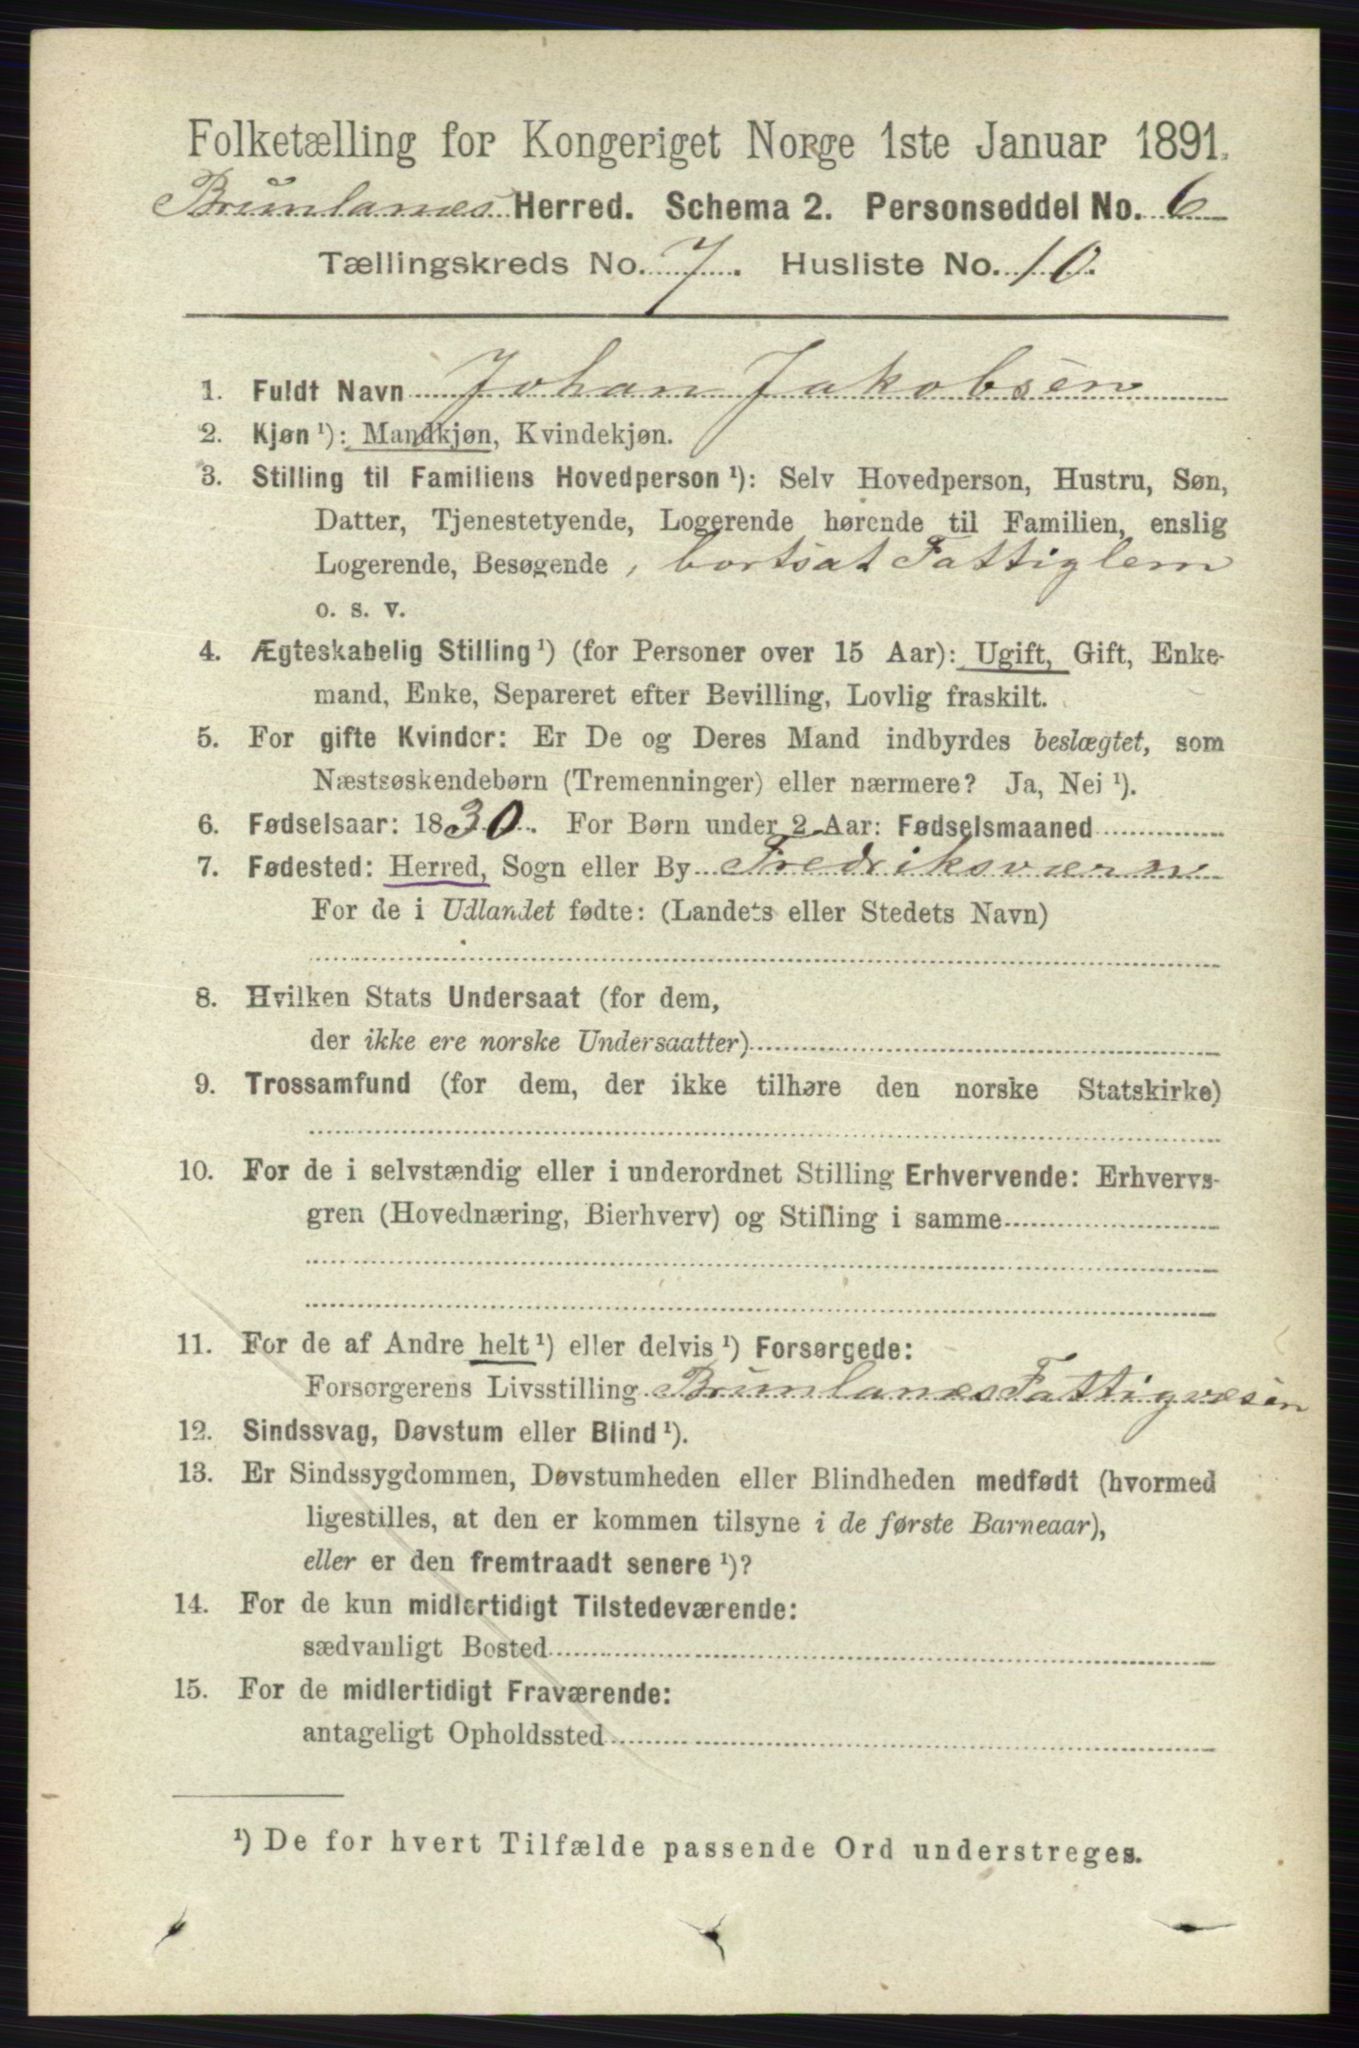 Folketælling for Kongeriget Norge 1ste Januar 1891.
Brunlanes Herred. Schema 2. Personseddel No. 6
Tællingskreds No. 7. Husliste No. 10.
1. Fuldt Navn Johan Jakobsen
2. Kjøn ¹): Mandkjøn, Kvindekjøn.
3. Stilling til Familiens Hovedperson ¹): Selv Hovedperson, Hustru, Søn,
Datter, Tjenestetyende, Logerende hørende til Familien, enslig
Logerende, Besøgende, bortsat Fattiglem
o. s. v.
4. Ægteskabelig Stilling ¹) (for Personer over 15 Aar): Ugift, Gift, Enke-
mand, Enke, Separeret efter Bevilling, Lovlig fraskilt.
5. For gifte Kvinder: Er De og Deres Mand indbyrdes beslægtet, som
Næstsøskendebørn (Tremenninger) eller nærmere? Ja, Nei ¹).
6. Fødselsaar: 1830. For Børn under 2 Aar: Fødselsmaaned
7. Fødested: Herred, Sogn eller By Fredriksværn
For de i Udlandet fødte: (Landets eller Stedets Navn)
8. Hvilken Stats Undersaat (for dem,
der ikke ere norske Undersaatter)
9. Trossamfund (for dem, der ikke tilhøre den norske Statskirke)
10. For de i selvstændig eller i underordnet Stilling Erhvervende: Erhvervs-
gren (Hovednæring, Bierhverv) og Stilling i samme
11. For de af Andre helt ¹) eller delvis ¹) Forsørgede:
Forsørgerens Livsstilling Brunlanes Fattigvæsen
12. Sindssvag, Døvstum eller Blind ¹).
13. Er Sindssygdommen, Døvstumheden eller Blindheden medfødt (hvormed
ligestilles, at den er kommen tilsyne i de første Barneaar),
eller er den fremtraadt senere ¹)?
14. For de kun midlertidigt Tilstedeværende:
sædvanligt Bosted
15. For de midlertidigt Fraværende:
antageligt Opholdssted
¹) De for hvert Tilfælde passende Ord understreges.